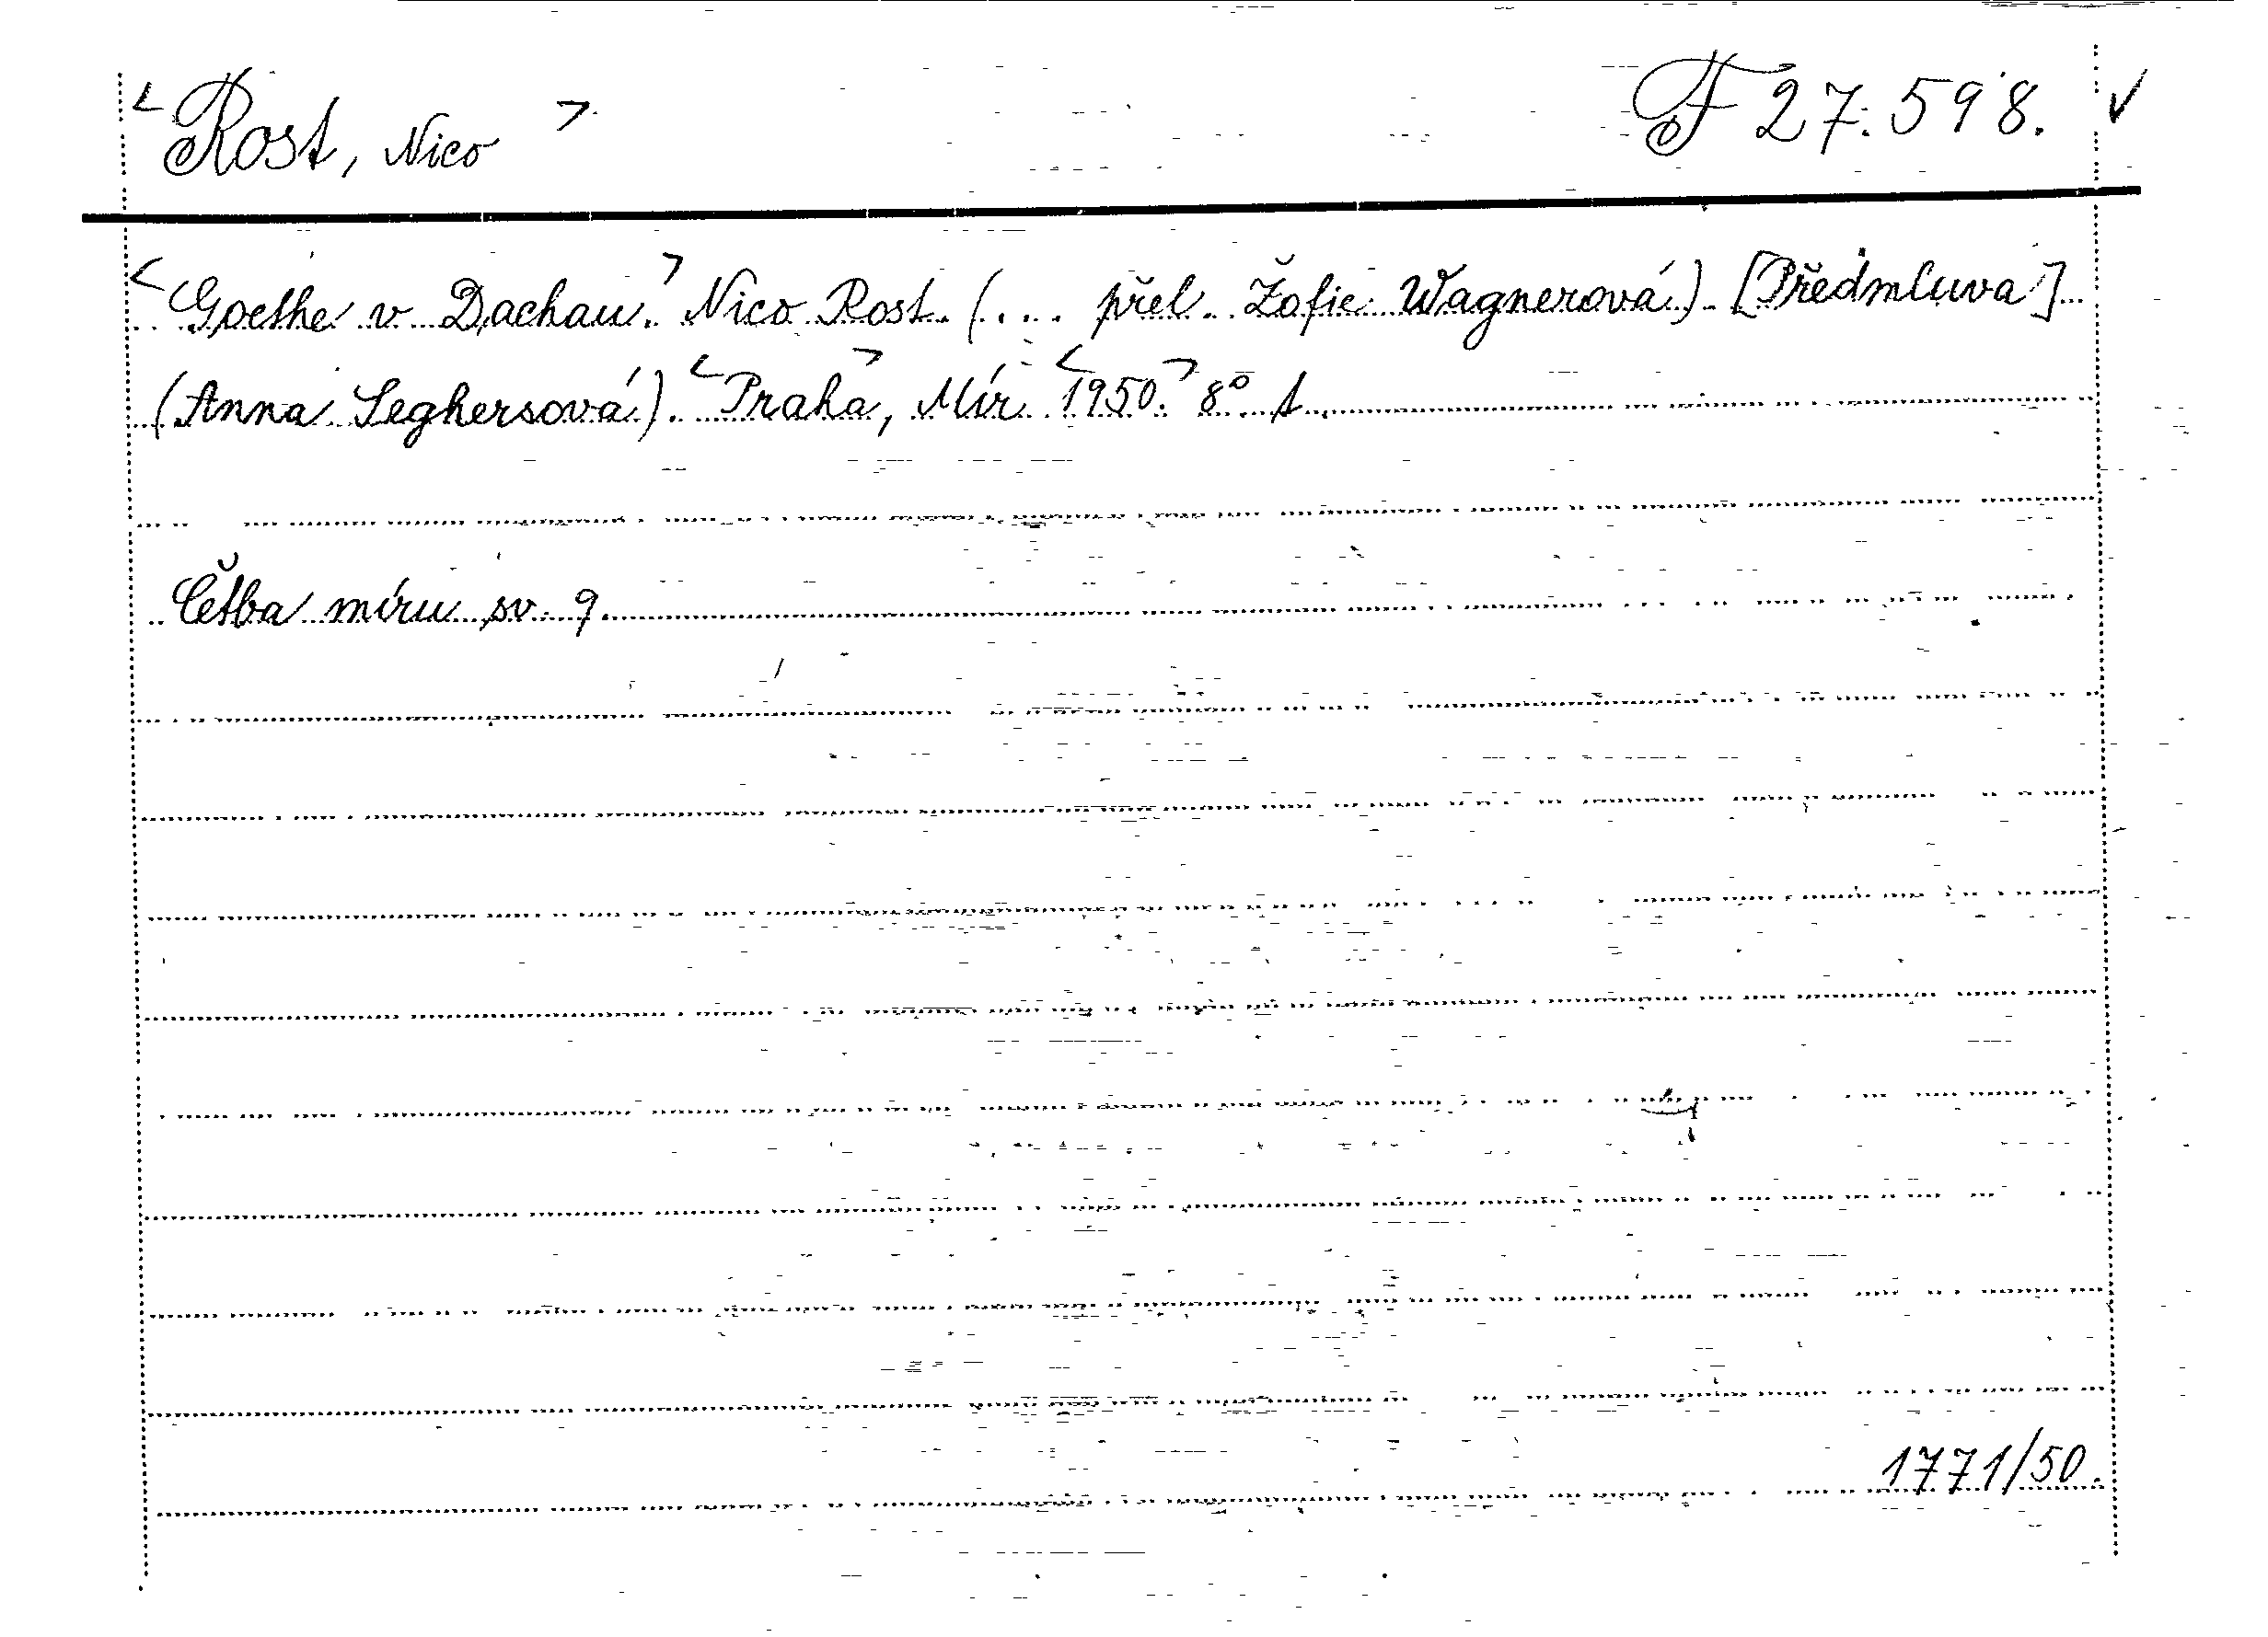 <Rost, Nico> F 27.598. ✓
<Goethe v Dachau.> Nico Rost. (... přel. Žofie Wagnerová). [Předmluva]
(Anna Seghersová). <Praha>, Mír <1950.> 8° 1.
Četba míru sv. 9.
1771/50.